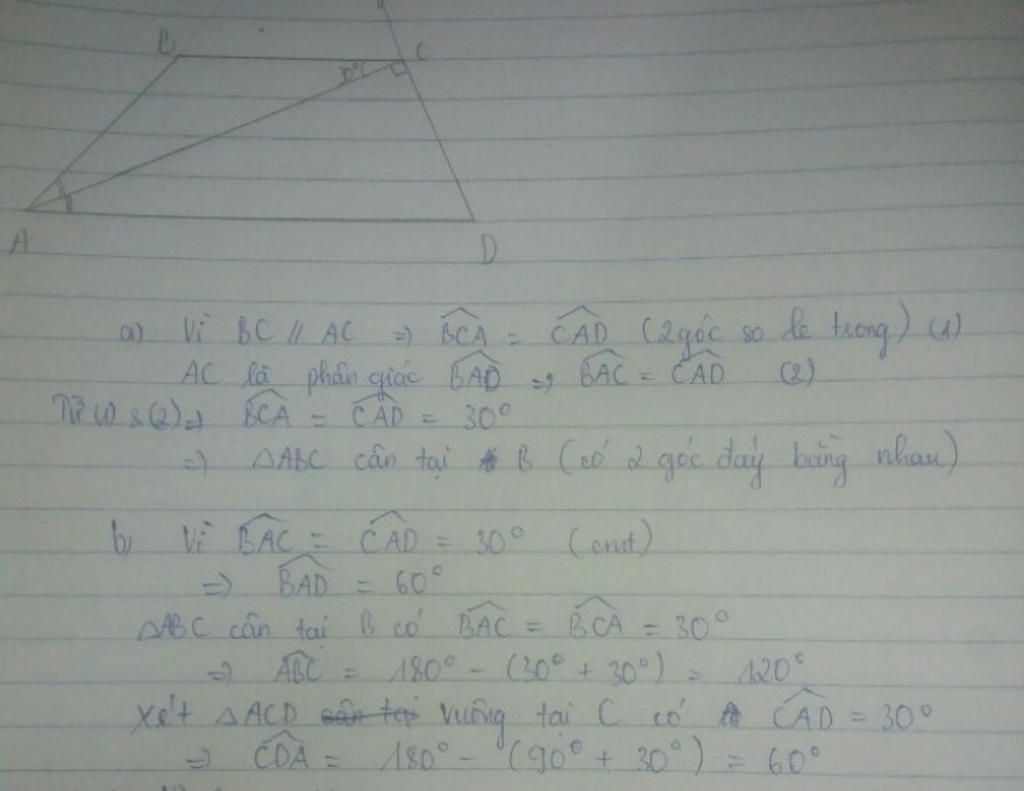 B
C
A
D
a) Vì BC // AC => \widehat{BCA} = \widehat{CAD} (2 góc so le trong) (1)
AC là phân giác \widehat{BAD} => \widehat{BAC} = \widehat{CAD} (2)
Từ (1) & (2) => \widehat{BCA} = \widehat{CAD} = 30°
=> △ABC cân tại B (có 2 góc đáy bằng nhau)
b) Vì \widehat{BAC} = \widehat{CAD} = 30° (cmt)
=> \widehat{BAD} = 60°
△ABC cân tại B có \widehat{BAC} = \widehat{BCA} = 30°
=> \widehat{ABC} = 180° - (30° + 30°) = 120°
Xét △ACD cân tại vuông tại C có \widehat{CAD} = 30°
=> \widehat{CDA} = 180° - (90° + 30°) = 60°